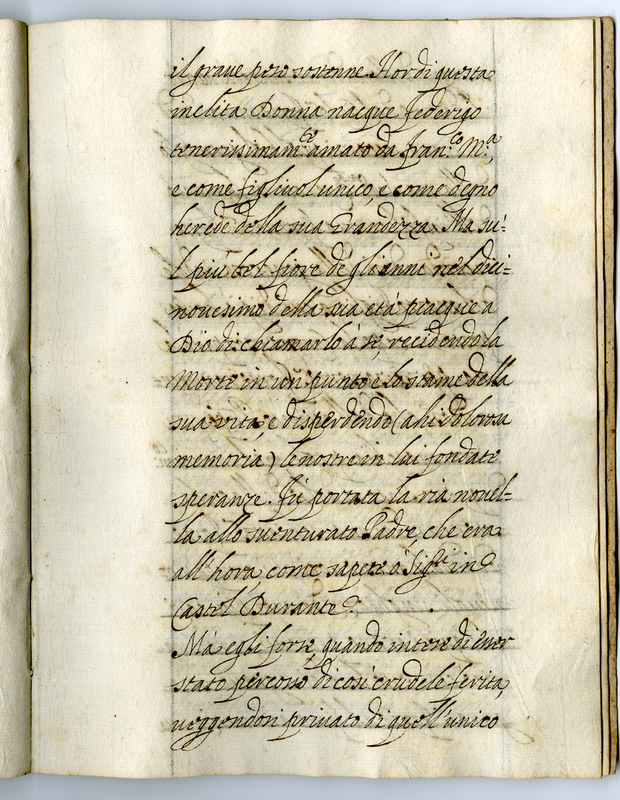 il graue peso sostenne. Hor di questa
inclita Donna nacque Federigo
tenerissimam.te amato da fran.co M.a,
e come figliuol unico, e come degno
herede della sua Grandezza. Ma su'=
l più bel fiore de gli anni nel deci=
nouesimo della sua età piacque a
Dio di chiamarlo à se, recidendo la
Morte in un punto e lo stame della
sua vita, e disperdendo (ahi dolorosa
memoria) le nostre in lui fondate
speranze. Fù portata la ria nouel=
la allo suenturato Padre, che era
all'hora come sapete ò Sig.ri in
Castel Durante.
Ma egli forse, quando intese di esser
stato percosso di così crudele ferita,
ueggendosi priuato di quell'unico